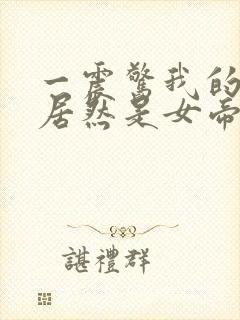 一震驚我的
居然是女帝
諶禮群